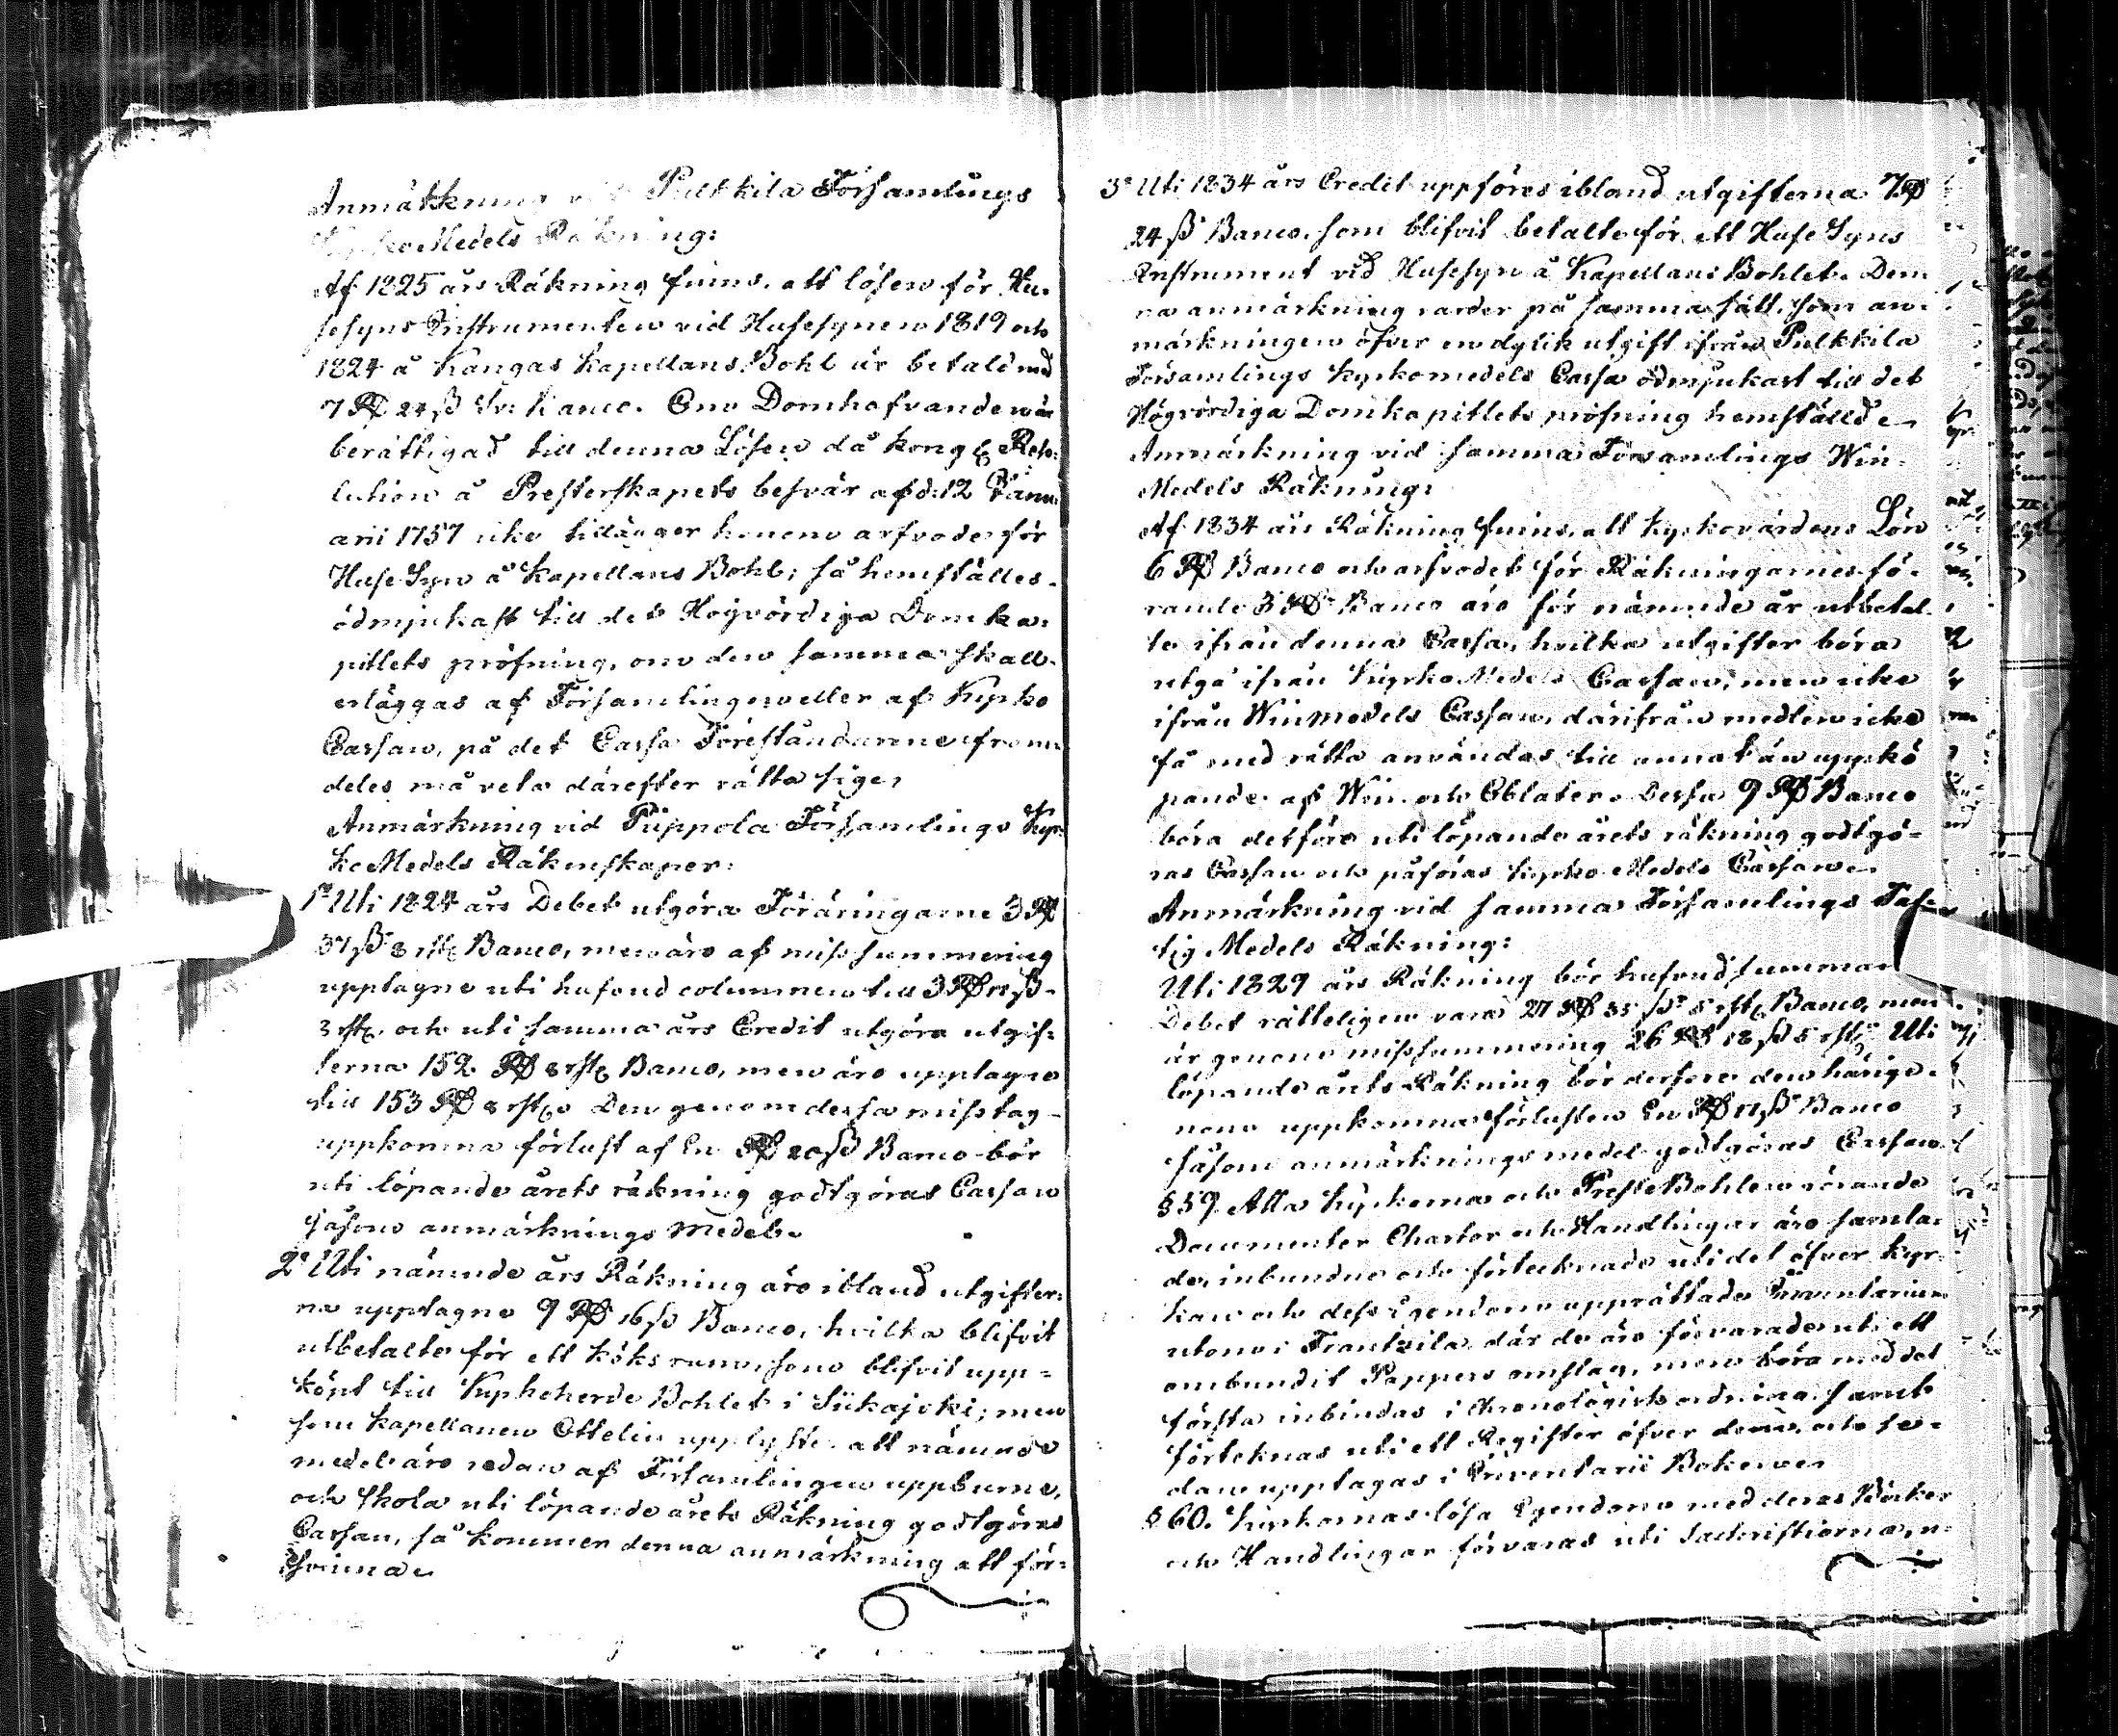 Anmärkning vid Pulkkila Församlings
Kyrko Medels Räkning:
Af 1825 års Räkning finns, att lösen för Hu-
sesyns Instrumenten vid Husesynen 1819 och
1824 å Kangas Kapellans Bohl är betald med
7 Rd 24 ß Sv: Banco. Om Domhafvanden är
berättigad till denna Lösen då Kongl Reso-
lution å Presterskapets besvär af d: 12 Janu-
arii 1757 icke tillägger honom arfvode för
Huse Syn å Kapellans Bohl; så hemställes
ödmjukast till det Högvördiga Domka-
pitlets pröfning, om den samma skall
erläggas af Församlingen eller af Kyrko
Cassan, på det Cassa Föreståndarene fram-
deles må veta därefter rätta sig.
Anmärkning vid Pippola Församlings Kyr-
ko Medels Räkenskaper:
1º Uti 1824 års Debet utgöra Föräringarne 3 Rd
37 ß 8 rst Banco, men äro af miss summering
upptagne uti hufvud columnen till 3 Rd 17 ß
8 rst och uti samma års Credit utgöra utgif-
terna 152 Rd 8 rst Banco, men äro upptagne
till 153 Rd 8 rst. Den genom dessa misstag
uppkomna förlust af En Rd 20 ß Banco bör
uti löpande årets räkning godtgöras Cassan
såsom anmärknings medel.
2º Uti nämnde års Räkning äro ibland utgifter-
na upptagne 9 Rd 16 ß Banco, hvilka blifvit
utbetalte för ett köksrum, som blifvit upp-
köpt till Kyrkoherde Bohlet i Siikajoki; men
som Kapellanen Ottelin upplyste att nämnde
medel äro redan af Församlingen uppburne,
och skola uti löpande årets Räkning godtgöras
Cassan, så kommer denna anmärkning att för-
svinna.
3º Uti 1834 års Credit uppföres ibland utgifterna 7 Rd
24 ß Banco, som blifvit betalte för ett Huse Syns
Instrument vid Husesyn å Kapellans Bohlet. Den-
na anmärkning varder på samma sätt, som an-
märkningen öfver en dylik utgift ifrån Pulkkila
Församlings Kyrkomedels Cassa ödmjukast till det
Högvördiga Domkapitlets pröfning hemställd.
Anmärkning vid samma Församlings Win-
Medels Räkning:
Af 1834 års Räkning finns, att Kyrkovärdens Lön
6 Rd Banco och arfvodet för Räkningarnes fö-
rande 3 Rd Banco äro för nämnde år utbetal-
te ifrån denna Cassa, hvilka utgifter böra
utgå ifrån Kyrko Medels Cassan, men icke
ifrån Winmedels Cassan, därifrån medlen icke
få med rätta användas till annat än uppkö-
pande af Win och Oblater. Dessa 9 Rd Banco
böra derföre uti löpande årets räkning godtgö-
ras Cassan och påföras Kyrko Medels Cassan.
Anmärkning vid samma Församlings Fat-
tig Medels Räkning:
Uti 1829 års Räkning bör hufvudsumman
Debet rätteligen vara 27 Rd 35 ß 5 rst Banco, men
är genom miss summering 26 Rd 18 ß 5 rst. Uti
löpande årets Räkning bör derföre den härige-
nom uppkomna förlusten En Rd 17 ß Banco
såsom anmärknings medel godtgöras Cassan.
§ 59. Alla Kyrkorna och Preste Bohlen rörande
Documenter Chartor och Handlingar äro samla-
de, inbundne och förtecknade uti det öfver Kyr-
kan och dess Egendom upprättade Inventarium
utom i Frantsila, där de äro förvarade uti ett
ombundit Pappers omslag, men böra med det
första inbindas i chronologisk ordning samt
förteknas uti ett Register öfver dem, och se-
dan upptagas i Inventarii Boken.
§ 60. Kyrkornas lösa Egendom med deras Böcker
och Handlingar förvaras uti Sacristiorna, u-